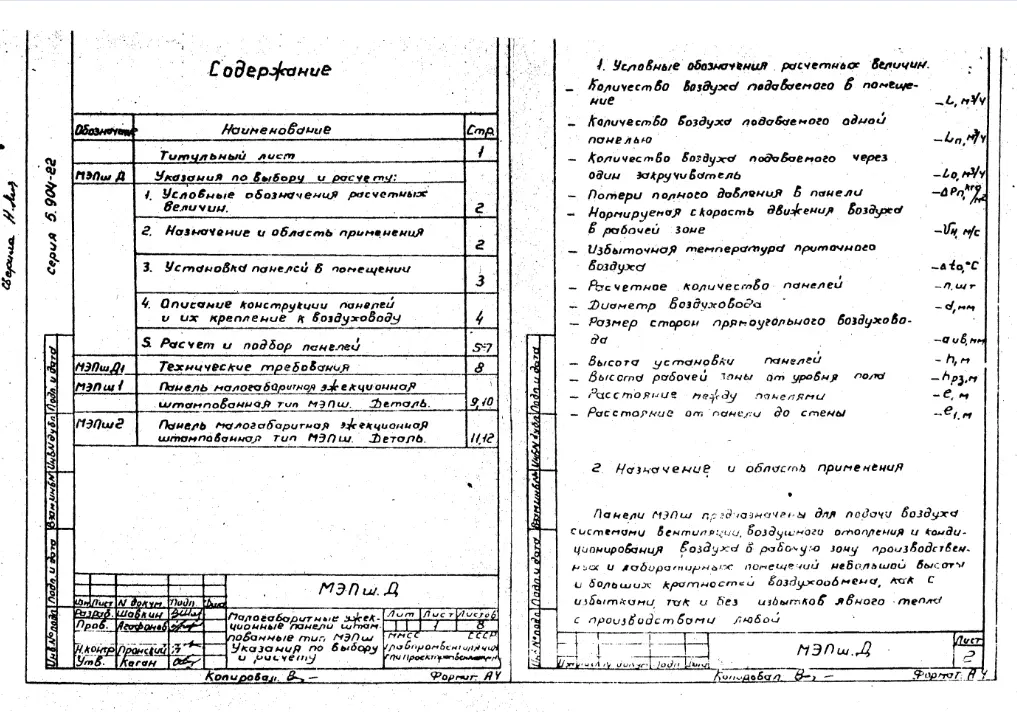 Содержание
Обозначение Наименование Стр.
Титульный лист 1
МЭПш Д Указания по выбору и расчету:
1. Условные обозначения расчетных
величин. 2
2. Назначение и область применения
2
3. Установка панелей в помещении
3
4. Описание конструкции панелей
и их крепление к воздуховоду 4
5. Расчет и подбор панелей 5-7
МЭПш.Д1 Технические требования 8
МЭПш1 Панель малогабаритная эжекционная
штампованная тип МЭПш. Деталь. 9,10
МЭПш2 Панель малогабаритная эжекционная
штампованная тип МЭПш. Деталь. 11,12
серия 5.904-22
Сверила
Подп. и дата
Инв.N дубл.
Взам.инв.N
Подп. и дата
Инв.N подл.
МЭПш.Д
Изм. Лист N докум. Подп. Дата
Разраб. Шавкин
Пров. Агафонов
Н.контр. Пронский
Утв. Каган
Малогабаритные эжек-
ционные панели штам-
пованные тип МЭПш
Указания по выбору
и расчету
Лит Лист Листов
1 8
ММСС СССР
Копировал. Формат А4
1. Условные обозначения расчетных величин.
– Количество воздуха подаваемого в помеще-
ние –L, м³/ч
– Количество воздуха подаваемого одной
панелью –Lп, м³/ч
– Количество воздуха подаваемого через
один закручиватель –Lo, м³/ч
– Потери полного давления в панели –ΔPп, кгс/м²
– Нормируемая скорость движения воздуха
в рабочей зоне –Vн, м/с
– Избыточная температура приточного
воздуха –Δto,°C
– Расчетное количество панелей –n, шт
– Диаметр воздуховода –d, мм
– Размер сторон прямоугольного воздухово-
да –а и в, мм
– Высота установки панелей – h, м
– Высота рабочей зоны от уровня пола –hрз, м
– Расстояние между панелями –e, м
– Расстояние от панели до стены –e1, м
2. Назначение и область применения
Панели МЭПш предназначены для подачи воздуха
системами вентиляции, воздушного отопления и конди-
ционирования воздуха в рабочую зону производствен-
ных и лабораторных помещений небольшой высоты
и больших кратностей воздухообмена, как с
избытками, так и без избытков явного тепла
с производствами любой
Подп. и дата
Инв.N дубл.
Взам.инв.N
Подп. и дата
Инв.N подл.
МЭПш.Д
Лист
2
Копировал Формат А4